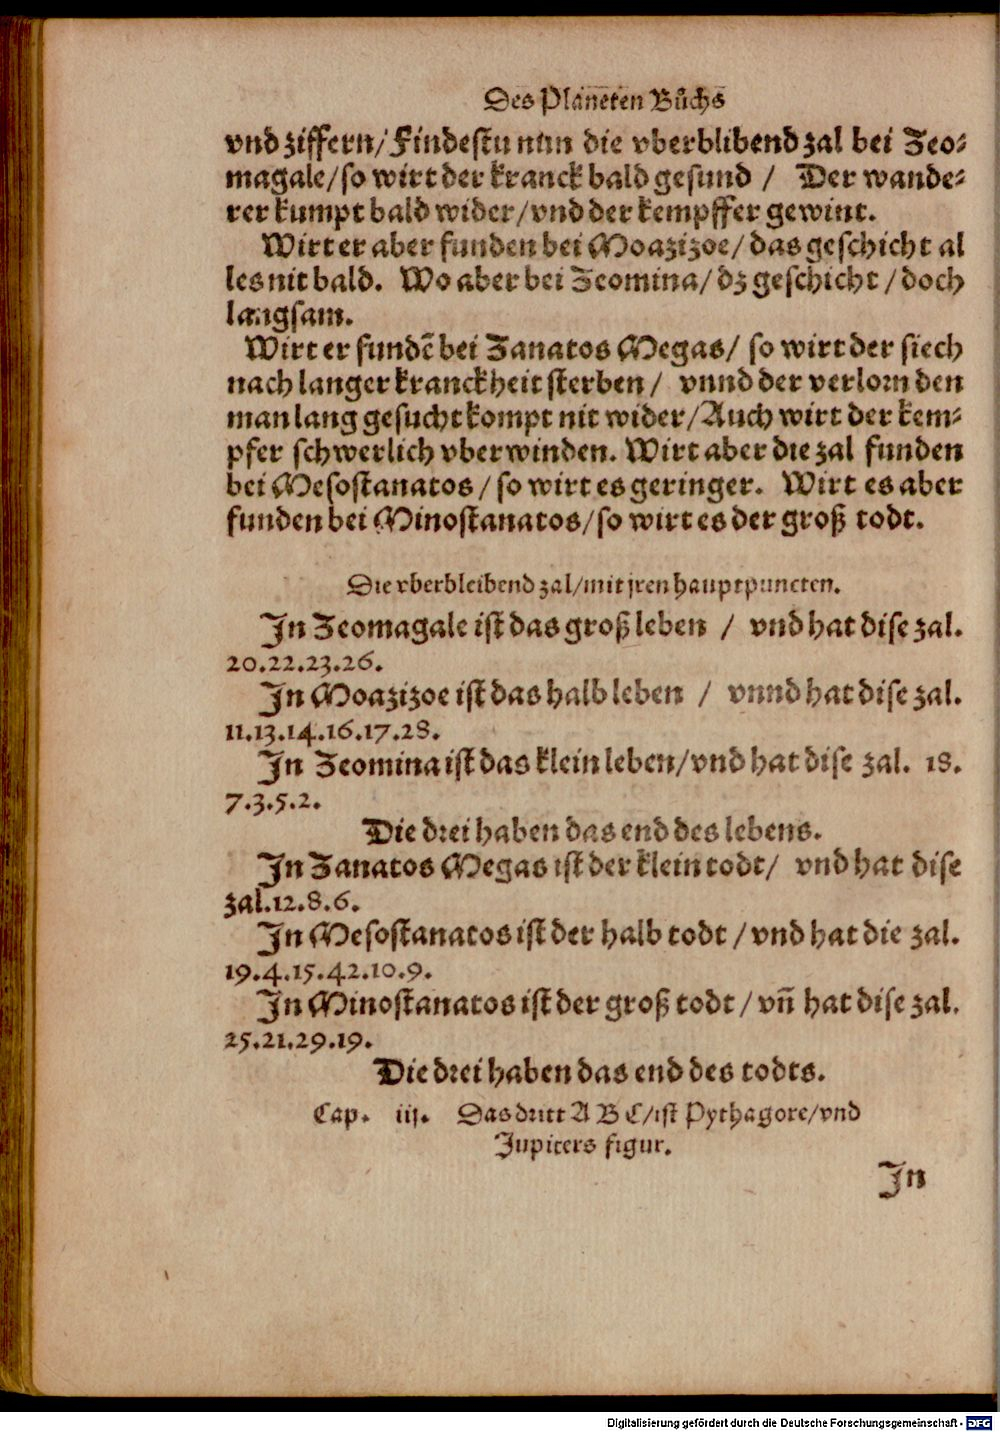 Des Planeten Bůchs
vnd ziffern/ Findestu nun die vberblibend zal bei Zeo-
magale/ so wirt der kranck bald gesund / Der wande-
rer kumpt bald wider/ vnd der kempffer gewint.
Wirt er aber funden bei Moazizoe/ das geschicht al
les nit bald. Wo aber bei Zeomina/ dz geschicht / doch
langsam.
Wirt er fundē bei Zanatos Megas/ so wirt der siech
nach langer kranckheit sterben / vnnd der verlorn den
man lang gesucht kompt nit wider/ Auch wirt der kem-
pfer schwerlich vberwinden. Wirt aber die zal funden
bei Mesostanatos / so wirt es geringer. Wirt es aber
funden bei Minostanatos/ so wirt es der groß todt.
Die vberbleibend zal/ mit jren hauptpuncten.
In Zeomagale ist das groß leben / vnd hat dise zal.
20.22.23.26.
In Moazizoe ist das halb leben / vnnd hat dise zal.
11.13.14.16.17.28.
In Zeomina ist das klein leben/ vnd hat dise zal. 18.
7.3.5.2.
Die drei haben das end des lebens.
In Zanatos Megas ist der klein todt/ vnd hat dise
zal.12.8.6.
In Mesostanatos ist der halb todt / vnd hat die zal.
19.4.15.42.10.9.
In Minostanatos ist der groß todt / vñ hat dise zal.
25.21.29.19.
Die drei haben das end des todts.
Cap. iij. Das dritt A B C/ ist Pythagore/ vnd
Jupiters figur.
In
Digitalisierung gefördert durch die Deutsche Forschungsgemeinschaft - DFG